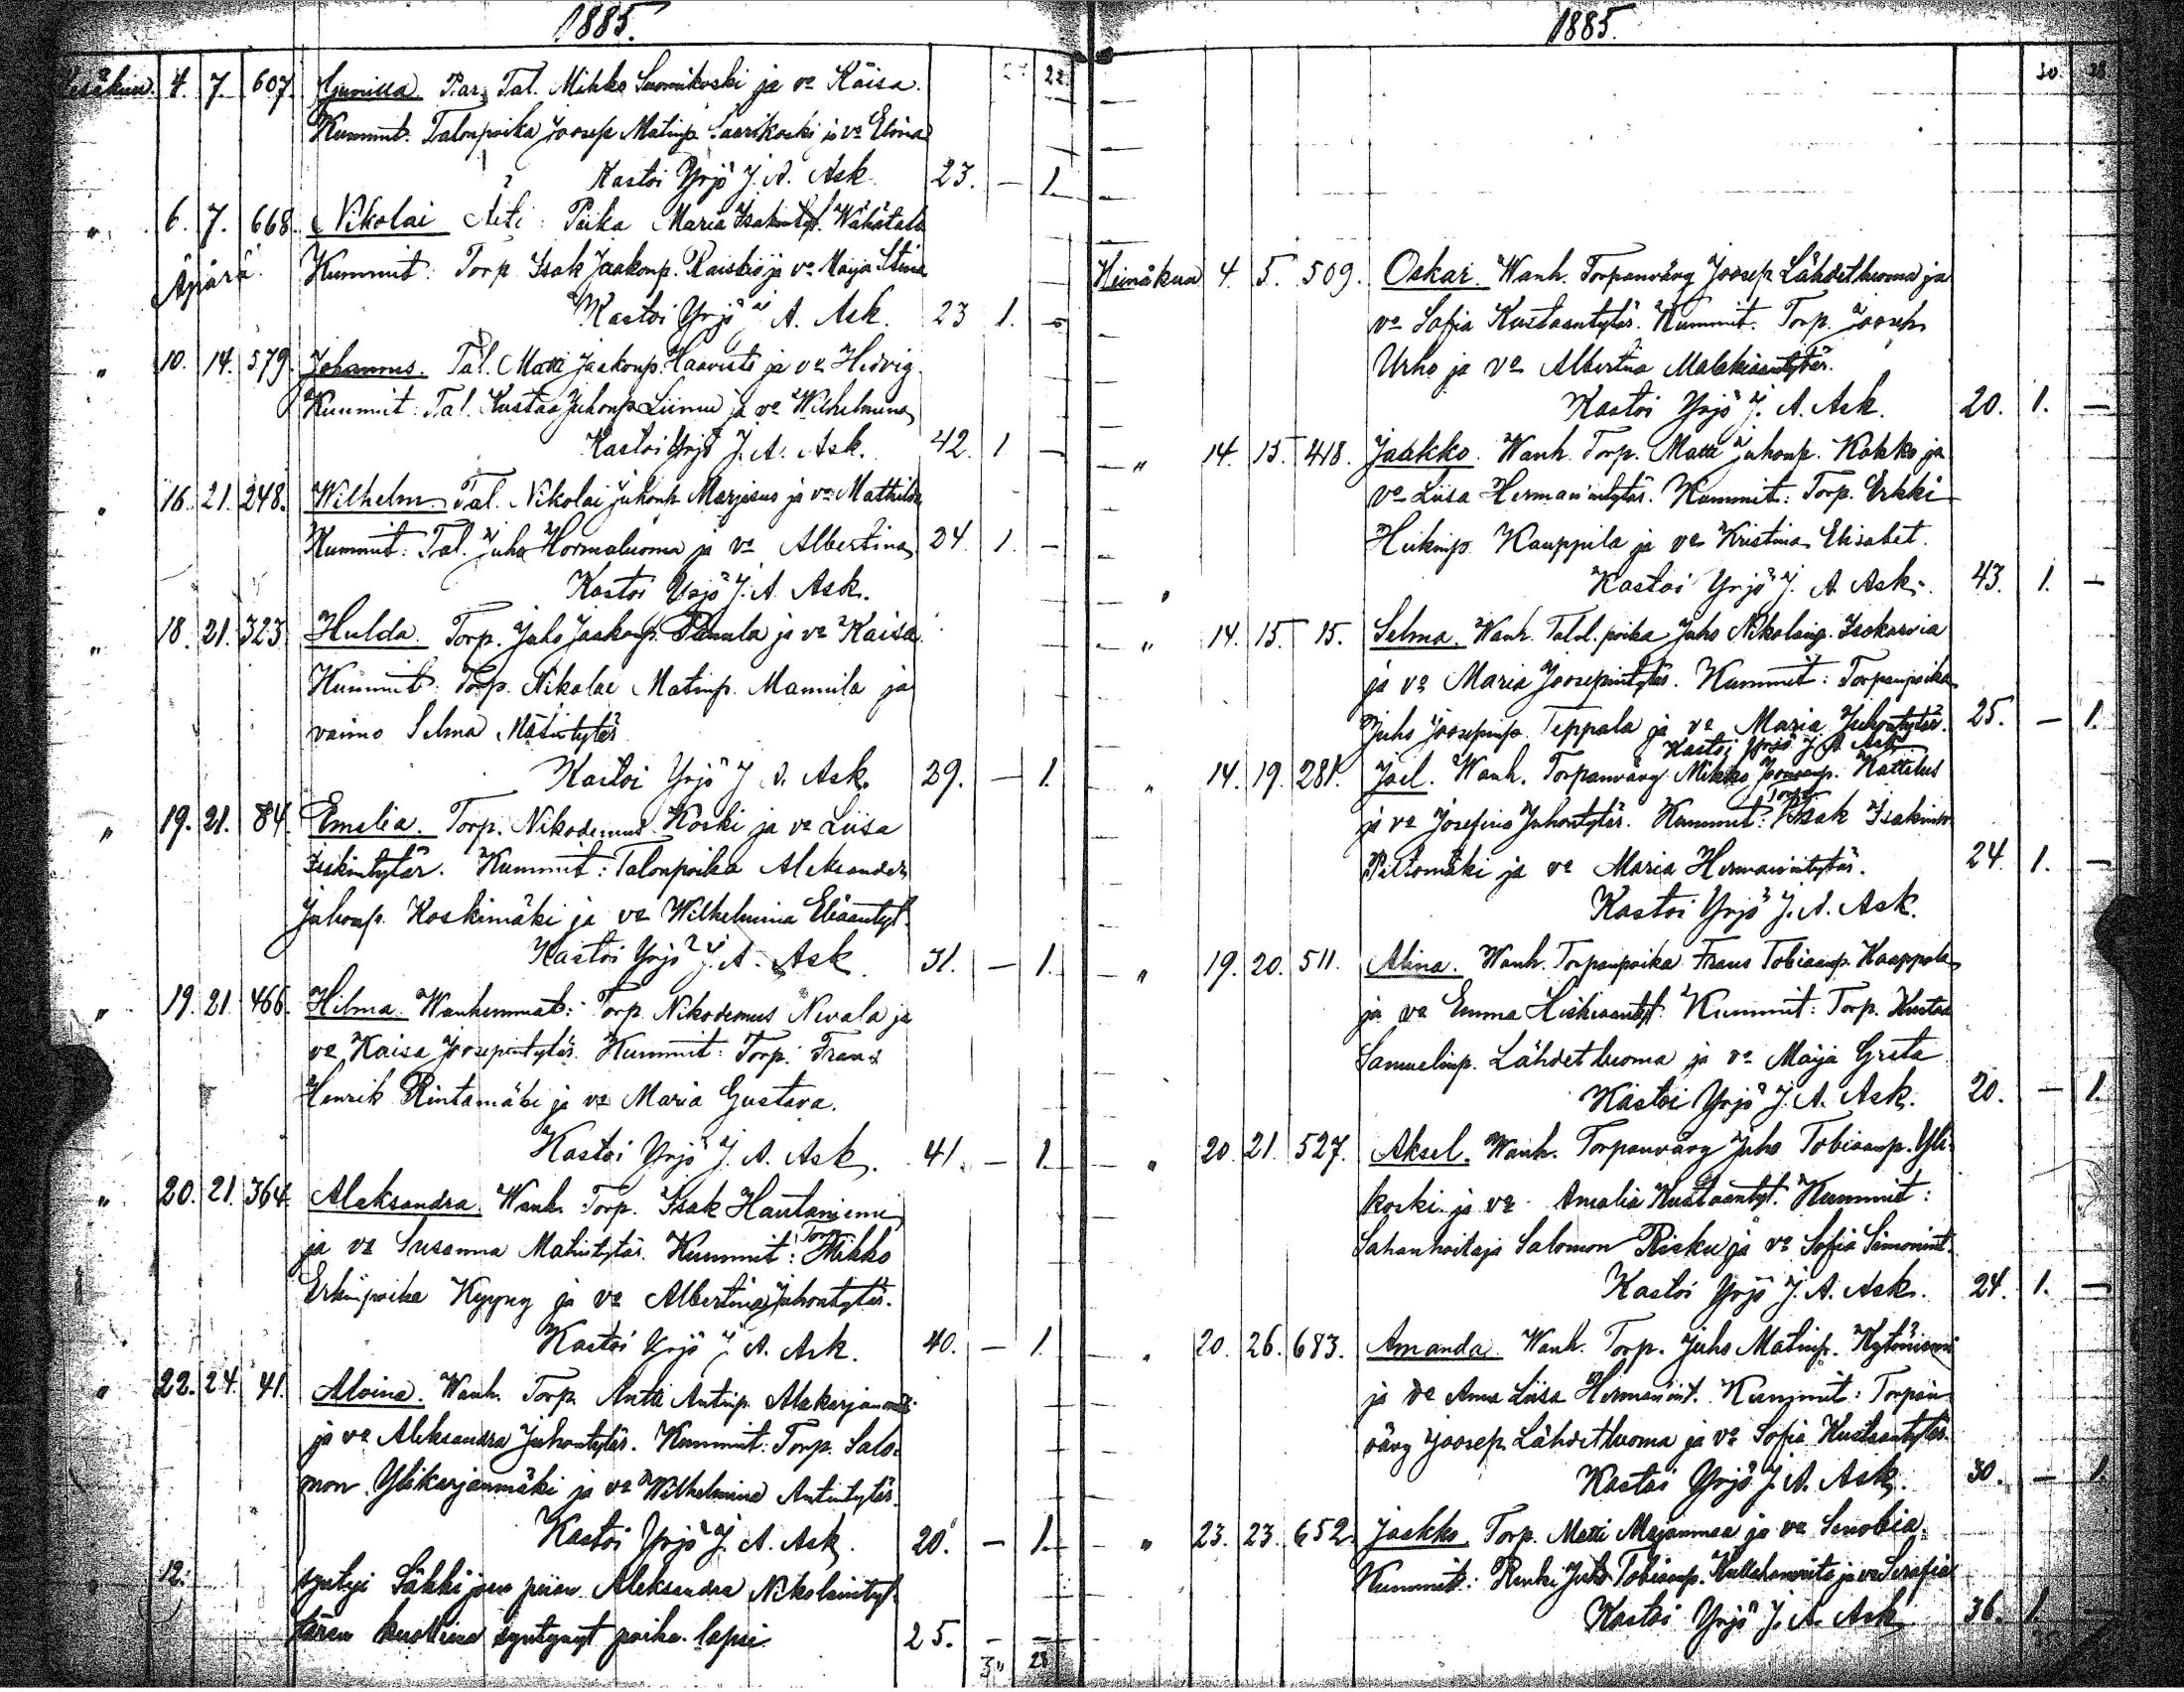 1885.
22.
Kesäkuu. 4. 7. 607. Gunilla. Par. Tal. Mikko Suomikoski ja vo Kaisa.
Kummit. Talonpoika Joosep Matinp. Saarikoski ja vo Elviina
Kastoi Yrjö J. A. Ask. 23. — 1.
" 6. 7. 668. Nikolai Äiti: Piika Maria Isakintyt. Wähätalo
Äpärä. Kummit: Torp. Isak Jaakonp. Raiskio ja vo Maija Stina
Kastoi Yrjö J. A. Ask. 23 1. —
" 10. 14. 579. Johannes. Tal. Matti Jaakonp. Haavisto ja vo Hedvig.
Kummit: Tal. Kustaa Juhonp. Liinu ja vo Wilhelmiina
Kastoi Yrjö J. A. Ask. 42. 1 —
" 16. 21. 248. Wilhelm. Tal. Nikolai Juhonp. Marjasus ja vo Mathilda
Kummit: Tal. Juho Hormaluoma ja vo Albertina 24. 1. —
Kastoi Yrjö J. A. Ask.
" 18. 21. 323. Hulda. Torp. Juho Jaakonp. Panula ja vo Kaisa.
Kummit: Torp. Nikolai Matinp. Mannila ja
vaimo Selma Matintytär
Kastoi Yrjö J. A. Ask. 29. — 1.
" 19. 21. 84. Emelia. Torp. Nikodemus Koski ja vo Liisa
Kummit: Talonpoika Aleksander
Juhonp. Koskimäki ja vo Wilhelmina Eliaantyt.
Kastoi Yrjö J. A. Ask 31. — 1.
" 19. 21. 466. Hilma. Wanhemmat: Torp. Nikodemus Nevala ja
vo Kaisa Joosepintytär. Kummit: Torp. Frans
Henrik Rintamäki ja vo Maria Gustava.
Kastoi Yrjö J. A. Ask. 41. — 1.
" 20. 21. 364. Aleksandra. Wanh. Torp. Isak Hautaniemi
ja vo Susanna Matintytär. Kummit: Torp. Mikko
Erkinpoika Kyyny ja vo Albertina Juhontytär.
Kastoi Yrjö J. A. Ask. 40. — 1.
" 22. 24. 41. Alvina. Wanh. Torp. Antti Antinp. Alakarjanmäki
ja vo Aleksandra Juhontytär. Kummit: Torp. Salo-
mon Ylikarjanmäki ja vo Wilhelmina Antintytär.
Kastoi Yrjö J. A. Ask. 20. — 1.
12. syntyi Säkkijoen piian Aleksandra Nikolaintyt-
tären kuolleena syntynyt poika lapsi 25. — —
28
1885.
30. 28
Heinäkuu 4. 5. 509. Oskar. Wanh. Torpanvävy Joosep Lähdetluoma ja
vo Sofia Kustaantytär. Kummit. Torp. Joosep
Urho ja vo Albertina Malakiaantytär.
Kastoi Yrjö J. A. Ask. 20. 1. —
" 14. 15. 418. Jaakko. Wanh. Torp. Matti Juhonp. Kokko ja
vo Liisa Hermannintytär. Kummit: Torp. Erkki
Heikinp. Kauppila ja vo Kristina Elisabet.
Kastoi Yrjö J. A. Ask. 43. 1. —
" 14. 15. 15. Selma. Wanh. Talol. poika Juho Nikolainp. Isokorvia
ja vo Maria Joosepintytär. Kummit: Torpanpoika
Juho Joosepinp. Teppala ja vo Maria Juhontytär. 25. — 1.
Kastoi Yrjö J. A. Ask
" 14. 19. 281. Joel. Wanh. Torpanvävy Mikko Joonaanp. Kattelus
ja vo Josefina Juhontytär. Kummit: Torp. Isak Isakinp.
Peltomäki ja vo Maria Hermannintytär. 24. 1. —
Kastoi Yrjö J. A. Ask.
" 19. 20. 511. Alina. Wanh. Torpanpoika Frans Tobiaanp. Kaappola
ja vo Emma Hiskiaantyt. Kummit: Torp. Kustaa
Samuelinp. Lähdetluoma ja vo Maija Greta
Kastoi Yrjö J. A. Ask. 20. — 1.
" 20. 21. 527. Aksel. Wanh. Torpanvävy Juho Tobiaanp. Yli-
koski ja vo Amalia Kustaantyt. Kummit:
Sahanhoitaja Salomon Risku ja vo Sofia Simonint.
Kastoi Yrjö J. A. Ask. 24. 1. —
" 20. 26. 683. Amanda. Wanh. Torp. Juho Matinp. Kytöniemi
ja vo Anna Liisa Hermannint. Kummit: Torpan-
vävy Joosep Lähdetluoma ja vo Sofia Kustaantytär.
Kastoi Yrjö J. A. Ask. 30. — 1.
" 23. 23. 652. Jaakko. Torp. Matti Majanmaa ja vo Senobia.
Kummit: Renki Juho Tobiaanp. ja vo Serafia
Kastoi Yrjö J. A. Ask 36. 1.